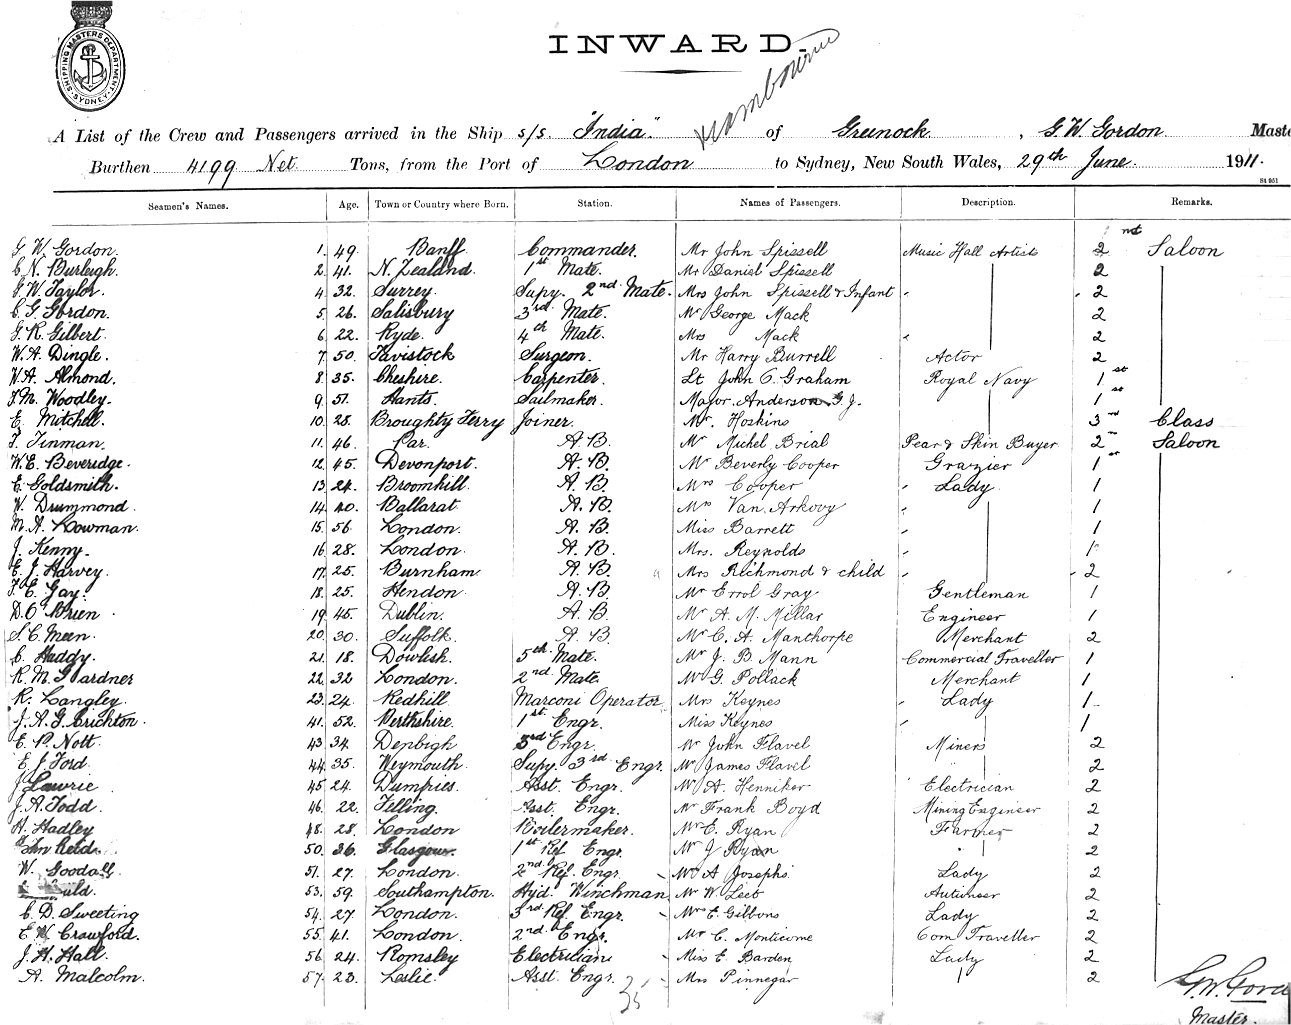 SHIPPING MASTERS DEPARTMENT SYDNEY
INWARD.
A List of the Crew and Passengers arrived in the Ship s/s. "India" of Greenock, G. W. Gordon Maste
Burthen 4199 Net. Tons, from the Port of London to Sydney, New South Wales, 29th June 1911.
81 951
Seamen's Names. Age. Town or Country where Born. Station. Names of Passengers. Description. Remarks.
G. W. Gordon. 1. 49. Banff Commander. Mr John Spissell Music Hall Artist 2nd Saloon
C. N. Burleigh. 2. 41. N. Zealand. 1st Mate. Mr Daniel Spissell 2
G. W. Taylor. 4. 32. Surrey. Supy. 2nd Mate. Mrs John Spissell & Infant " 2
C. G. Gordon. 5. 26. Salisbury 3rd Mate. Mr George Mack 2
G. R. Gilbert. 6. 22. Ryde. 4th Mate. Mrs Mack " 2
W. A. Dingle. 7. 50. Tavistock Surgeon. Mr Harry Burrell Actor 2
W. A. Almond. 8. 35. Cheshire. Carpenter. Lt John C. Graham Royal Navy 1st
F. M. Woodley. 9. 51. Hants. Sailmaker. Major Anderson G. J. 1st
E. Mitchell. 10. 28. Broughty Ferry Joiner. Mr. Hoskins 3rd Class
F. Tinman. 11. 46. Par. A. B. Mr Michel Brial Pear & Skin Buyer 2nd Saloon
W. E. Beveridge. 12. 45. Devonport. A. B. Mr Beverly Cooper Grazier 1st
E. Goldsmith. 13. 24. Broomhill. A. B. Mrs Cooper " Lady. 1
W. Drummond. 14. 40. Ballarat A. B. Mrs Van Arkovy " 1
M. A. Lowman. 15. 56. London. A. B. Miss Barrett " 1
J. Kenny. 16. 28. London. A. B. Mrs. Reynolds " 1
E. J. Harvey. 17. 25. Burnham. A. B. Mrs Richmond & child " 2
F. E. Gay. 18. 25. Hendon A. B. Mr Errol Gray Gentleman 1
D. O'Brien 19. 45. Dublin. A. B. Mr A. M. Millar Engineer 1
S. C. Meen. 20. 30. Suffolk. A. B. Mr C. A. Manthorpe Merchant 2
C. Haddy. 21. 18. Dowlish. 5th Mate. Mr J. B. Mann Commercial Traveller 1
R. M. Gardner 22. 32 London. 2nd Mate. Mr G. Pollack Merchant 1
R. Langley. 23. 24. Redhill. Marconi Operator Mrs Keynes " Lady 1
J. A. G. Crichton. 41. 52. Perthshire. 1st Engr. Miss Keynes " 1
E. P. Nott. 43. 34. Denbigh 3rd Engr. Mr John Flavel Miners 2
E. J. Ford. 44. 35. Weymouth. Supy. 3rd Engr. Mr James Flavel 2
J. Lawrie 45. 24. Dumfries. Asst. Engr. Mr A. Henniker Electrician 2
J. A. Todd 46. 22. Felling. Asst. Engr. Mr Frank Boyd Mining Engineer 2
H. Hadley 48. 28. London Boilermaker. Mr E. Ryan Farmer 2
Reid. 50. 36. Glasgow. 1st Ref. Engr. Mr J Ryan 2
W. Goodall. 51. 27. London. 2nd Ref. Engr. Mrs A Josephs Lady 2
53. 59. Southampton. Hyd. Winchman Mr W. Leet 2
C. D. Sweeting 54. 27. London. 3rd Ref. Engr. Mrs E. Gibbons Lady 2
E. W. Crawford. 55. 41. London. 2nd Engr. Mr C. Monticome Com Traveller 2
J. H. Hall. 56. 24. Romsley Electrician Miss E. Barden Lady 2
A. Malcolm. 57. 23. Leslie. Asst. Engr. Mrs Pinnegar 2
G. W. Gord
Master.